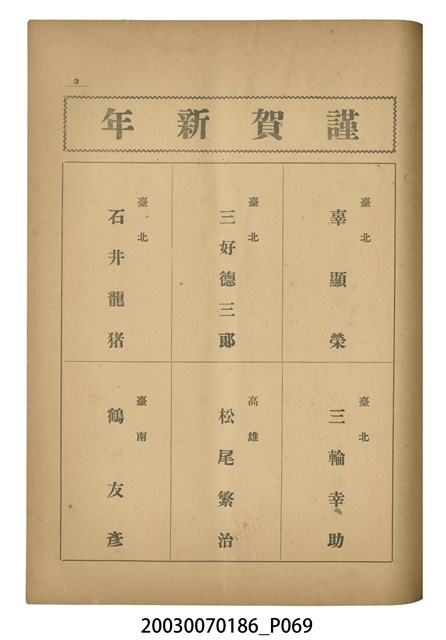 3
謹賀新年
臺北
辜顯榮
臺北
三好德三郎
臺北
石井龍猪
臺北
三輪幸助
高雄
松尾繁治
臺南
鶴友彥
20030070186_P069